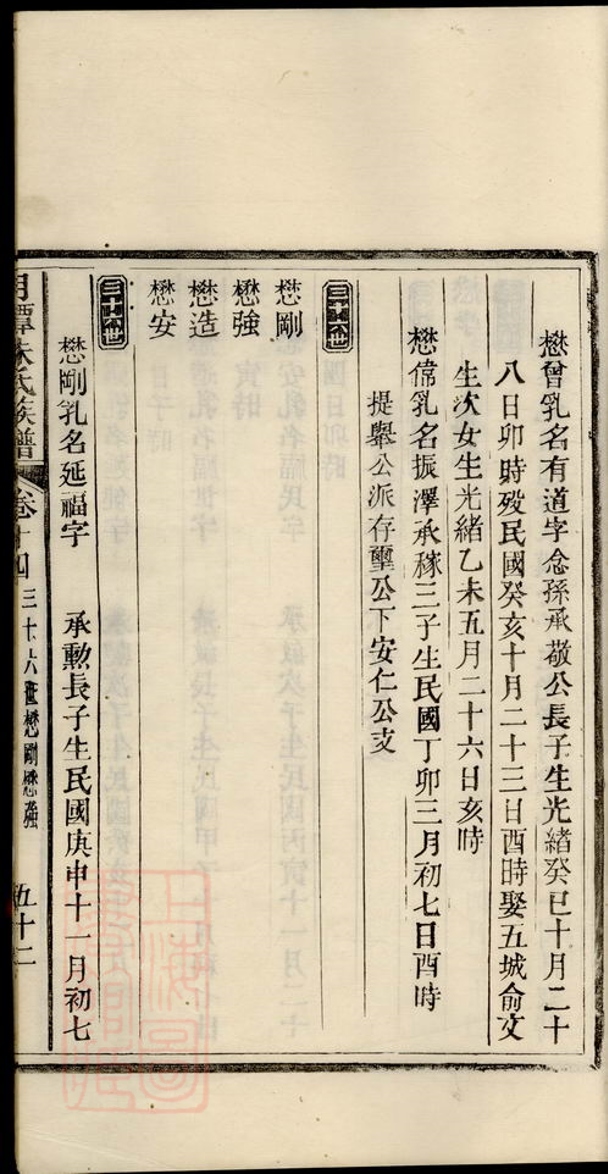 懋曾乳名有道字念孫承敬公長子生光緒癸巳十月二十
八日卯時歿民國癸亥十月二十三日酉時娶五城俞文
生次女生光緒乙未五月二十六日亥時
懋偉乳名振澤承稼三子生民國丁卯三月初七日酉時
提舉公派存璽公下安仁公支
三十六世
懋剛
懋強
懋造
懋安
三十六世
懋剛乳名延福字 承勲長子生民國庚申十一月初七
月潭朱氏族譜 卷十四 三十六世懋剛懋強 五十二